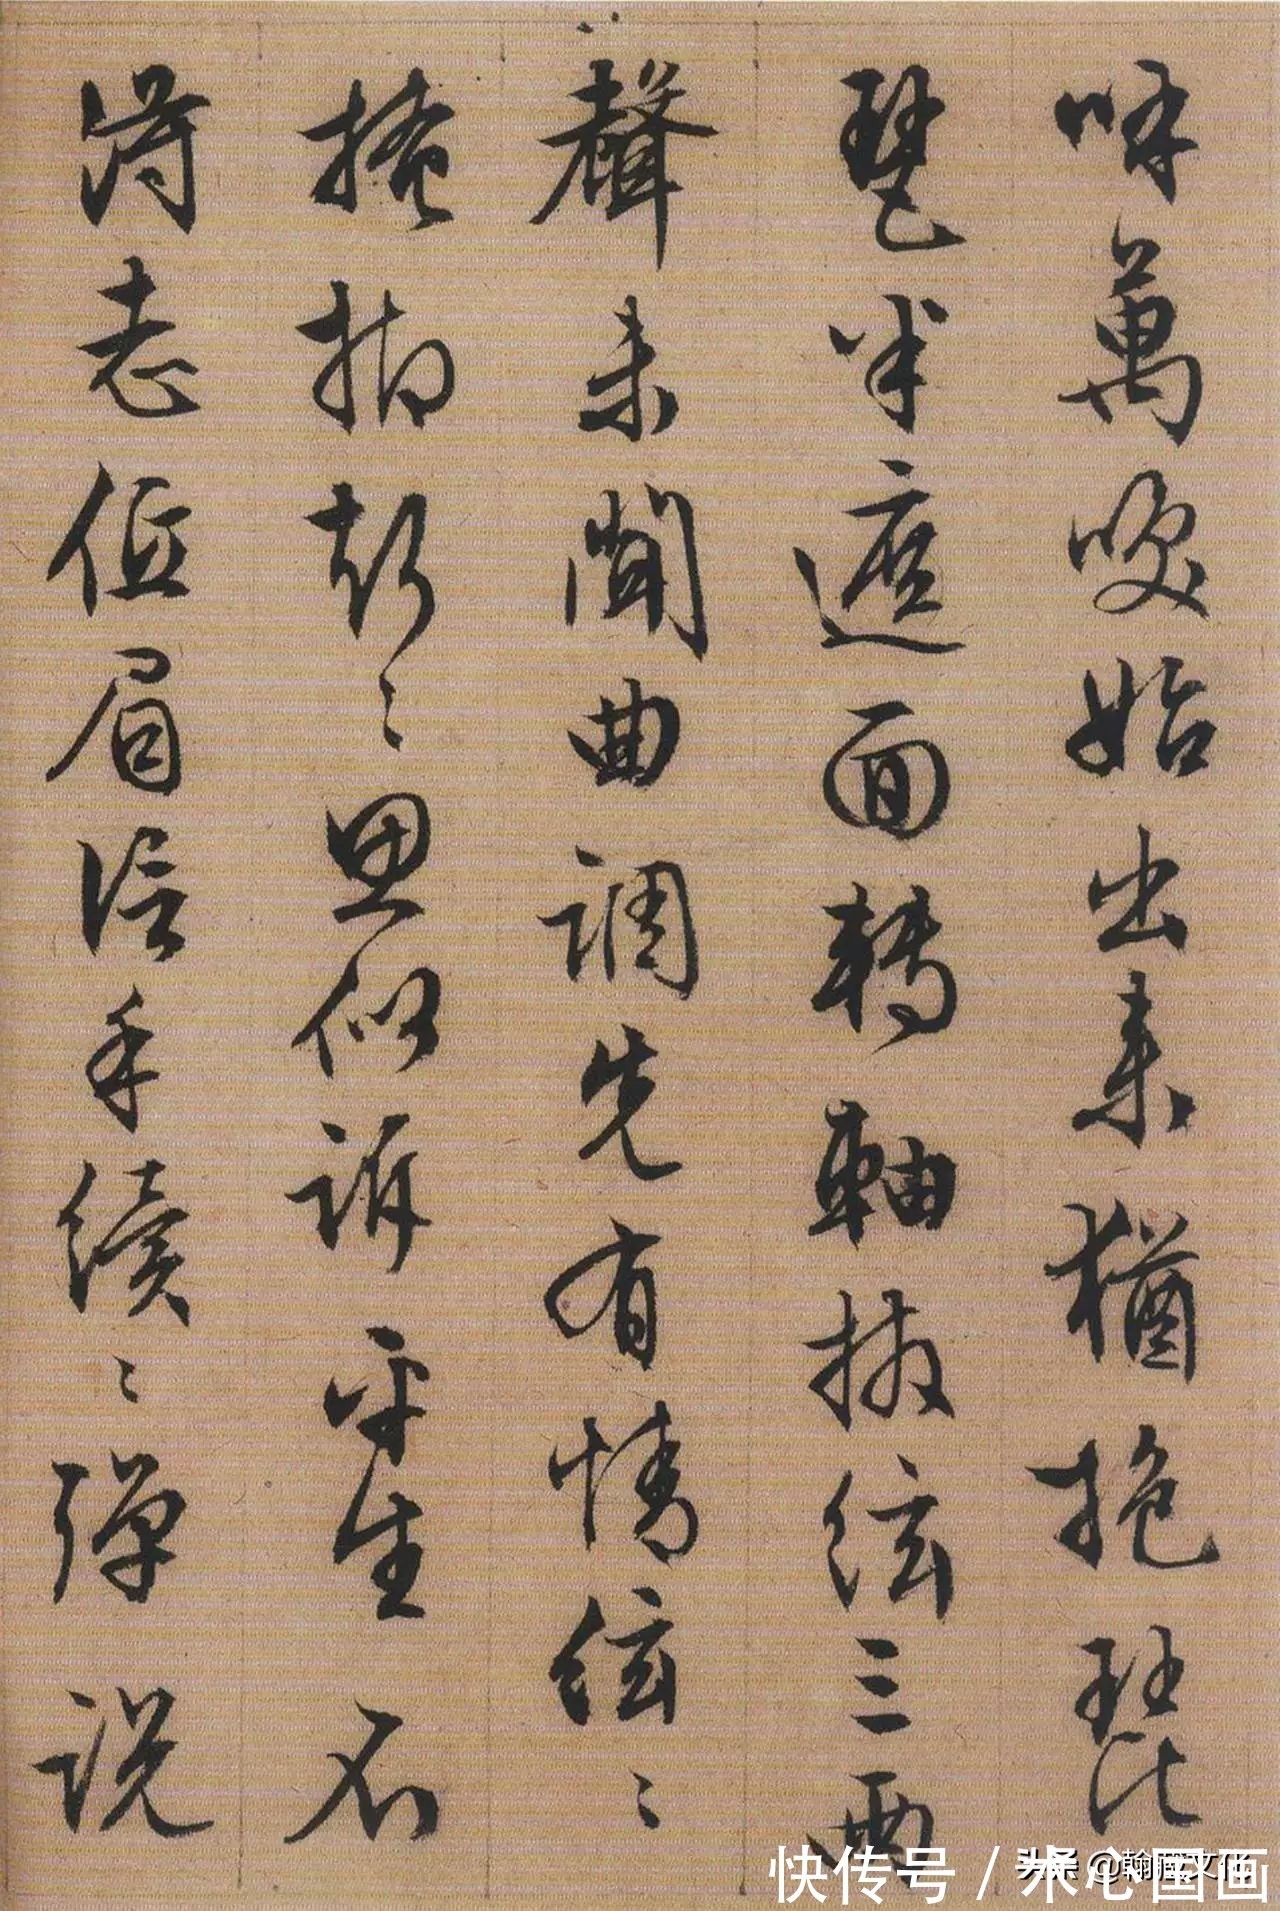 呼萬喚始出来猶抱琵
琶半遮面轉軸撥絃三兩
聲未聞曲調先有情絃〻
掩抑聲〻思似訴平生不
得志低眉信手續〻彈說
快传号 / 木心国画
头条 @翰